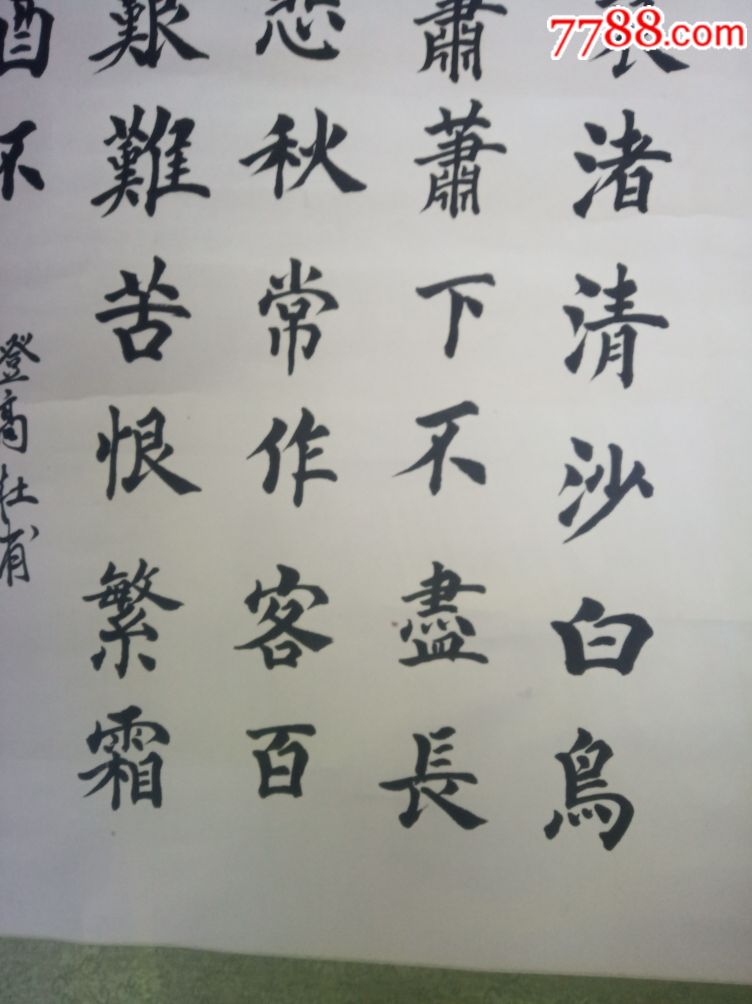 7788.com
哀渚清沙白鳥
蕭蕭下不盡長
悲秋常作客百
艱難苦恨繁霜
酒不
登高杜甫